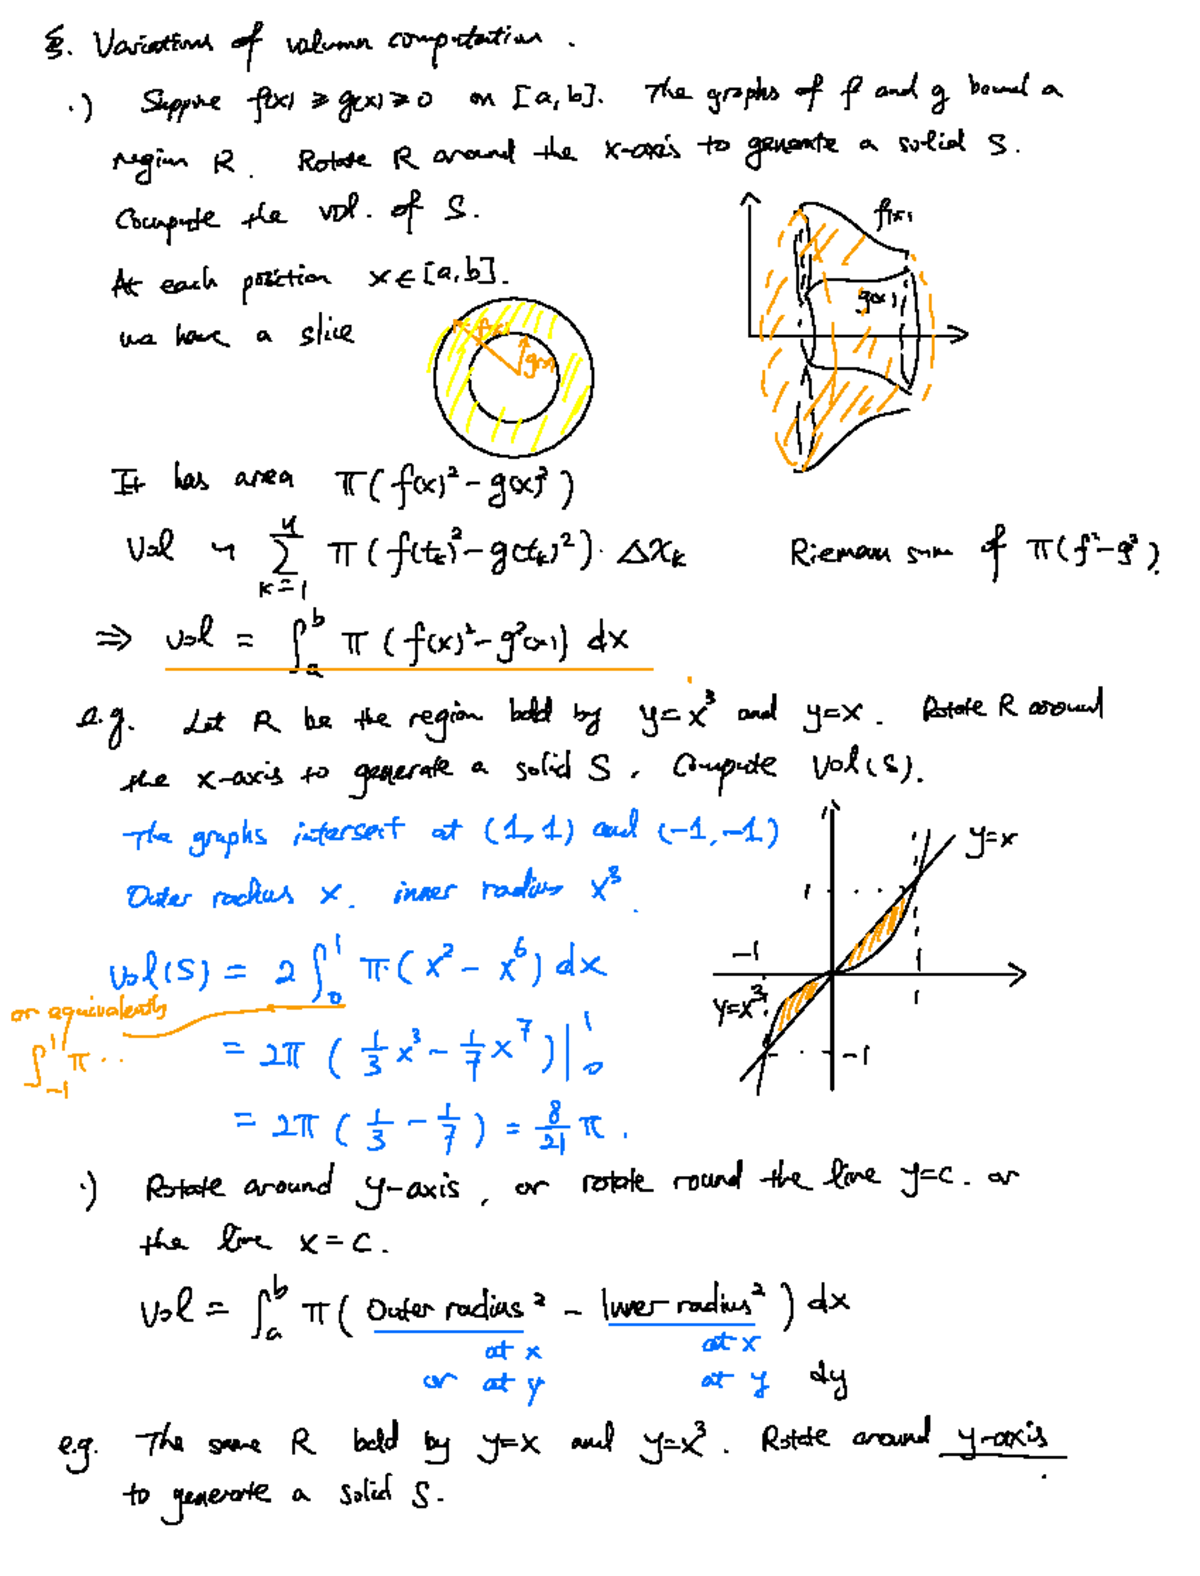 §. Variations of volumn computation.
·) Suppose f(x) ≥ g(x) ≥ 0 on [a, b]. The graphs of f and g bound a
region R. Rotate R around the x-axis to generate a solid S.
Compute the vol. of S.
f(x)
At each position x ∈ [a, b].
g(x)
we have a slice
f(x)
g(x)
It has area π( f(x)² - g(x)² )
Vol ~ ∑_{k=1}^{n} π( f(t_k)² - g(t_k)² ) · Δx_k Riemann sum of π(f² - g²)
⇒ vol = ∫_a^b π ( f(x)² - g²(x) ) dx
e.g. Let R be the region bdd by y = x³ and y = x. Rotate R around
the x-axis to generate a solid S. Compute Vol(S).
The graphs intersect at (1, 1) and (-1, -1)
y=x
Outer radius x. inner radius x³.
1
Vol(S) = 2 ∫_0^1 π·( x² - x⁶ ) dx
-1
1
y=x³
or equivalently
∫_{-1}^1 π ··
= 2π ( 1/3 x³ - 1/7 x⁷ ) |_0^1
-1
= 2π ( 1/3 - 1/7 ) = 8/21 π.
·) Rotate around y-axis, or rotate round the line y = c. or
the line x = c.
Vol = ∫_a^b π ( Outer radius² - Inner radius² ) dx
at x at x
or at y at y dy
e.g. The same R bdd by y=x and y=x³. Rotate around y-axis
to generate a solid S.